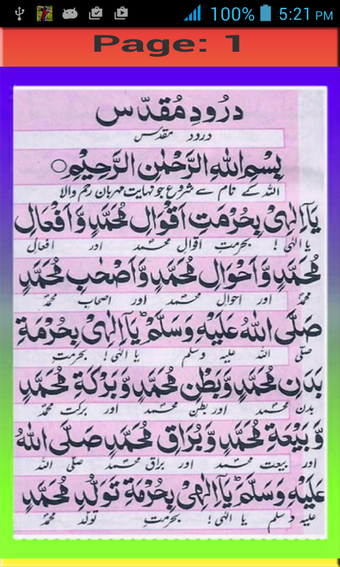 100% 5:21 PM
Page: 1
دُرُودِ مُقَدَّس
درود مقدس
بِسْمِ اللهِ الرَّحْمٰنِ الرَّحِيْمِ
اللہ کے نام سے شروع جو نہایت مہربان رحم والا
يَآ اِلٰهِيْ بِحُرْمَتِ اَقْوَالِ مُحَمَّدٍ وَّ اَفْعَالِ
یا الٰہی ! بحرمتِ اقوال محمد اور افعال
مُحَمَّدٍ وَّ اَحْوَالِ مُحَمَّدٍ وَّ اَصْحٰبِ مُحَمَّدٍ
محمد اور احوال محمد اور اصحاب محمد
صَلَّى اللهُ عَلَيْهِ وَسَلَّمَ ط يَآ اِلٰهِيْ بِحُرْمَةِ
صلی اللہ علیہ وسلم یا الٰہی ! بحرمتِ
بَدَنِ مُحَمَّدٍ وَّ بَطْنِ مُحَمَّدٍ وَّ بَرَكَةِ مُحَمَّدٍ
بدن محمد اور بطن محمد اور برکت محمد
وَّ بَيْعَةِ مُحَمَّدٍ وَّ بُرَاقِ مُحَمَّدٍ صَلَّى اللهُ
اور بیعت محمد اور براق محمد صلی اللہ
عَلَيْهِ وَسَلَّمَ ط يَآ اِلٰهِيْ بِحُرْمَةِ تَوَلُّدِ مُحَمَّدٍ
علیہ وسلم یا الٰہی ! بحرمتِ تولد محمد